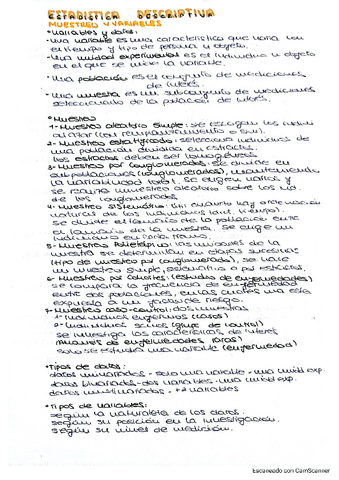 ESTADISTICA DESCRIPTIVA
MUESTREO Y VARIABLES
• Variables y datos:
- Una variable es una característica que varía con
el tiempo y tipo de persona u objeto.
- Una unidad experimental es el individuo u objeto
en el que se mide la variable.
- Una población es el conjunto de mediciones
de interés.
- Una muestra es un subconjunto de mediciones
seleccionado de la población de interés.
• Muestreo
1- Muestreo aleatorio simple: se escogen los individ.
al azar (con reemplazamiento o sin).
2- Muestreo estratificado: selecciona individuos de
una población dividida en estratos.
los estratos deben ser homogéneos
3- Muestreo por conglomerados: se divide en
subpoblaciones (conglomerados), manteniendo
la variabilidad total. Se eligen varios y
se realiza muestreo aleatorio sobre los
de los conglomerados.
4- Muestreo sistemático: sin cuando hay ordenación
natural de los individuos (dist. tiempo).
se divide el tamaño de la población entre
el tamaño de la muestra. Se elige un
individuo en cada tramo.
5- Muestreo Polietápico: las unidades de la
muestra se determinan en etapas sucesivas
(tipo de muestreo por conglomerados), se hace
un muestreo simple, sistemático o por estratos.
6- Muestreo por cohortes (estudio de enfermedades)
se compara la frecuencia de enfermedad
entre dos poblaciones, en las cuales una está
expuesta a un factor de riesgo.
7- Muestreo caso-control: dos muestras
1- Individuos enfermos (casos)
2- Individuos sanos (grupo de control)
se investiga las características de interés
(Muestreo de enfermedades raras)
solo se estudia una variable (enfermedad)
• Tipos de datos:
datos univariados - solo una variable - una unidad exp.
datos bivariados - dos variables - una unidad exp.
datos multivariados - +2 variables
• Tipos de variables:
según la naturaleza de los datos.
según su posición en la investigación.
según su nivel de medición.
Escaneado con CamScanner